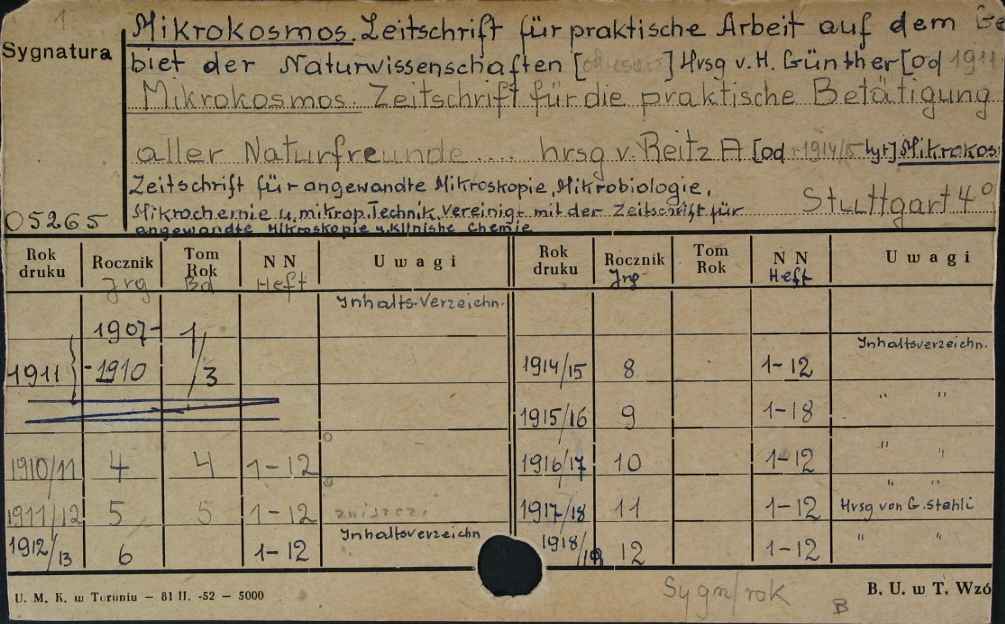 1
Mikrokosmos. Zeitschrift für praktische Arbeit auf dem Ge
Sygnatura
biet der Naturwissenschaften [ ] Hrsg v. H. Günther [od 1911
Mikrokosmos. Zeitschrift für die praktische Betätigung
aller Naturfreunde .... hrsg v. Reitz A [od 1914/5 hg] Mikrokos
Zeitschrift für angewandte Mikroskopie, Mikrobiologie,
Mikrochemie u. mikrop. Technik. Vereinigt mit der Zeitschrift für
Stuttgart 4°
05265
angewandte Mikroskopie u. klinishe Chemie
Rok druku Rocznik Tom Rok NN Uwagi Rok druku Rocznik Tom Rok NN Uwagi
Jrg Bd Heft Jrg Heft
Inhalts-Verzeichn.
1907- 1/
Inhaltsverzeichn.
1911 } -1910 /3 1914/15 8 1-12
1915/16 9 1-18 " "
1910/11 4 4 1-12 1916/17 10 1-12 " "
" "
1911/12 5 5 1-12 zniszcz. 1917/18 11 1-12 Hrsg von G. Stehli
1912/13 6 1-12 Inhaltsverzeichn 1918/19 12 1-12 " "
U. M. K. w Toruniu – 81 II. -52 – 5000
Sygn/rok
B
B. U. w T. Wzó